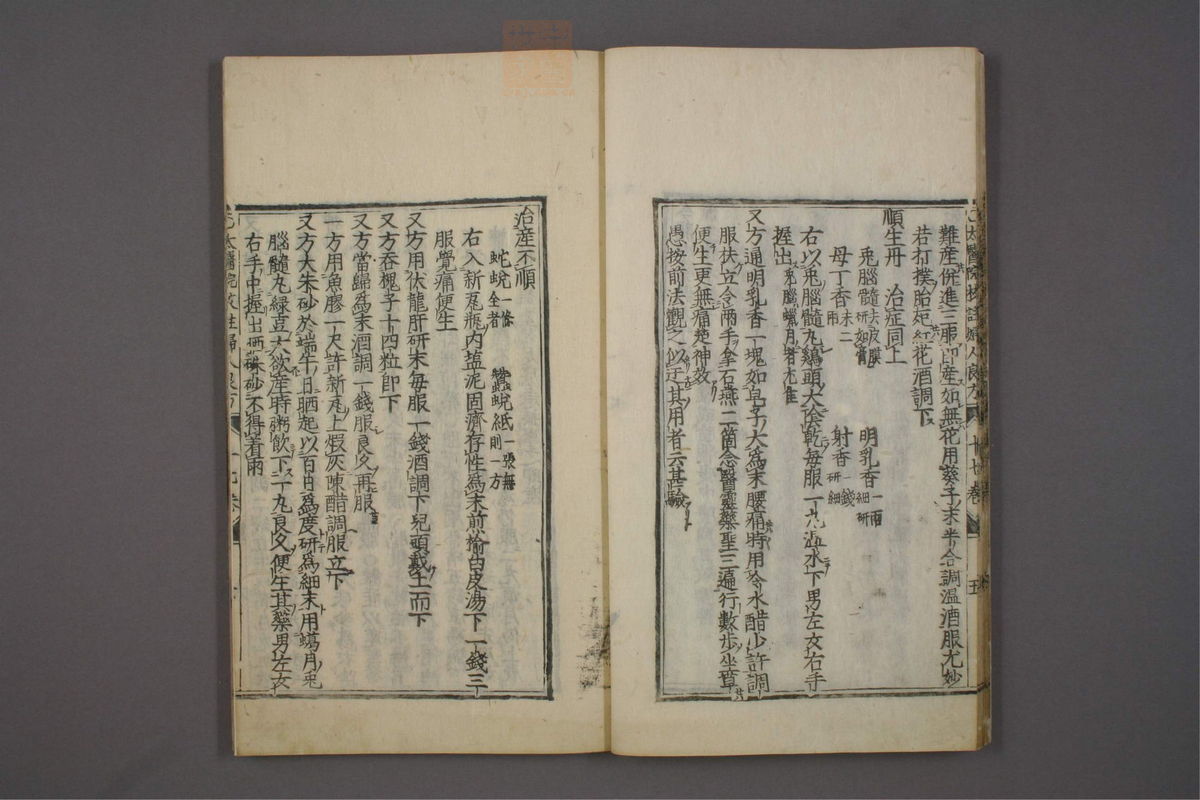 難産併進三服即産如無花用葵子末半合調温酒服尤妙
若打撲胎死紅花酒調下
順生丹　治症同上
兎腦髓去皮膜研如膏　明乳香一兩細研
母丁香末二兩　射香一錢研細
右以兎腦髓丸鷄頭大陰乾毎服一丸温水下男左女右手
握出兎腦臘月者尤佳
又方通明乳香一塊如皂子大爲末腰痛時用冷水醋少許調
服扶立令兩手拿石燕二箇念醫靈藥聖三遍行數歩坐草
便生更無痛楚神效
愚按前法觀之似迂其用者云甚驗
十七卷
五
治産不順
蛇蛻一條全者　蠶蛻紙一張無則一方
右入新瓦瓶内塩泥固濟存性爲末煎榆白皮湯下一錢三
服覺痛便生
又方用伏龍肝研末毎服一錢酒調下兒頭戴土而下
又方吞槐子十四粒即下
又方當歸爲末酒調一錢服良久再服
一方用魚膠一尺許新瓦上煆灰陳醋調服立下
又方大朱砂於端午日晒起以百日爲度研爲細末用蝋月兎
腦髓丸緑豆大欲産時粥飲下一丸良久便生其藥男左女
右手中握出晒硃砂不得着雨